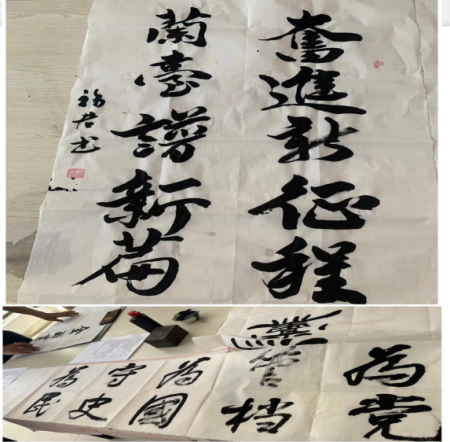 奮進新征程
蘭臺譜新篇
福君书
為党
管档
為國
守史
為民